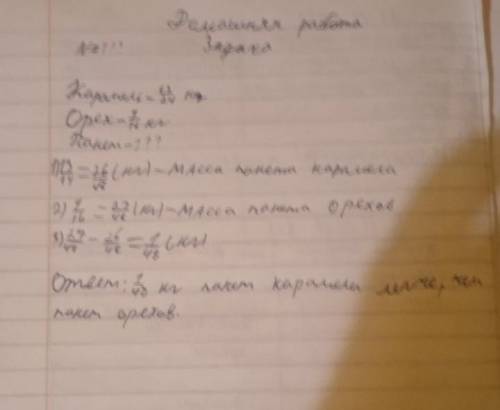 Домашняя работа
№ ???
Задача
Карамель = 13/24 кг
Орех = 9/16 кг
Пакет = ???
1) 13/24 = 26/48 (кг) - масса пакета карамела
2) 9/16 = 27/48 (кг) - масса пакета орехов
3) 27/48 - 26/48 = 1/48 (кг)
Ответ: 1/48 кг пакет карамели легче, чем
пакет орехов.